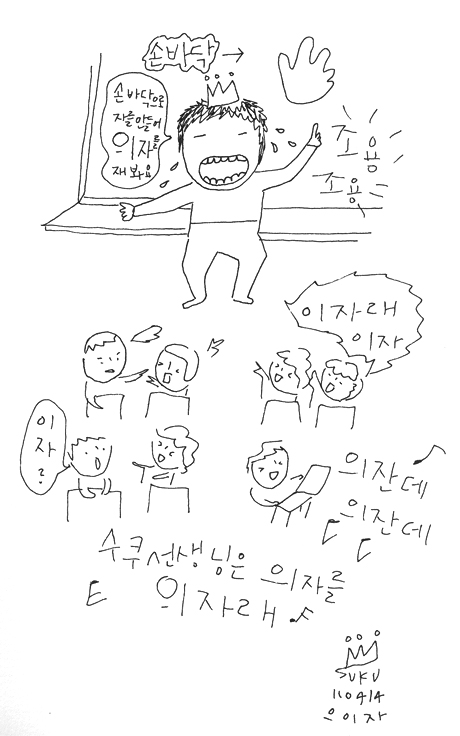 손바닥 →
손바닥으로
자를 만들어
의자를
재봐요
조용
조용
이자래
이자
이
자
?
의잔데
의잔데
수쿠선생님은 의자를
의자래
SUKU
110414
으이자